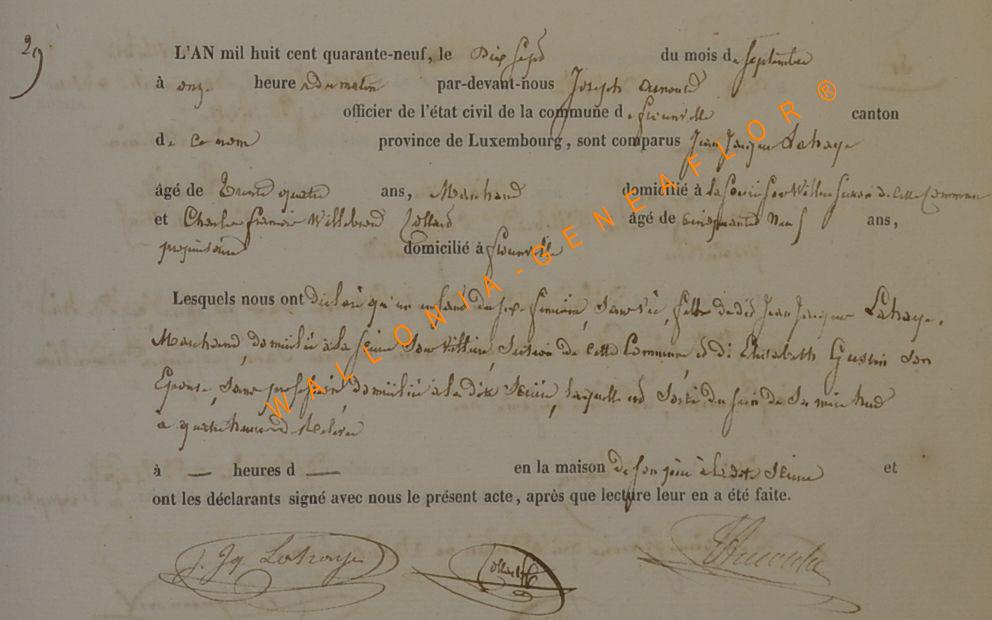 29
L'AN mil huit cent quarante-neuf, le Dix Sept du mois de Septembre
à onze heure du matin par-devant-nous Joseph Arnould
officier de l'état civil de la commune de canton
de ce nom province de Luxembourg, sont comparus Jean Jacques Lahaye
âgé de Trente quatre ans, Marchand domicilié à la Section de cette Commune
et Charles François Willebrord Collard âgé de cinquante Neuf ans,
propriétaire domicilié à
Lesquels nous ont déclaré qu'un enfant du sexe féminin, Sans vie, fille dudit Jean Jacques Lahaye,
Marchand, domicilié à la Section de cette Commune, et d'Elisabeth Gustin Son
Epouse, Sans profession, domiciliée à la dite laquelle est Sortie du sein de Sa mère
à quatre heures
à — heures d — en la maison de son père à la dite et
ont les déclarants signé avec nous le présent acte, après que lecture leur en a été faite.
J. Jq Lahaye Collard Arnould
WALLONIA-GENEAFLOR ®